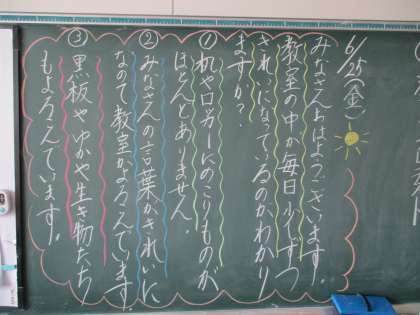 6/25(金)
みなさんおはようございます!
教室の中が毎日少しずつ
きれいになっているのがわかり
ますか?
①机やロッカーにのこりものが
ほとんどありません。
②みなさんの言葉がきれいに
なので教室がよろんでいます。
③黒板やゆかや生き物たち
もよろんでいます!